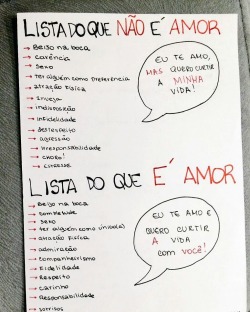 LISTA DO QUE NÃO É AMOR
→ Beijo na boca
→ carência
→ sexo
→ ter alguém como preferência
→ atração física
→ Inveja
→ indisposição
→ infidelidade
→ desrespeito
→ agressão
→ irresponsabilidade
→ CHORO!
→ Estresse
EU TE AMO,
MAS QUERO CURTIR
A MINHA
VIDA!
LISTA DO QUE É AMOR
→ Beijo na boca
→ sexo
→ ter alguém como único(a)
→ atração física
→ admiração
→ companheirismo
→ Fidelidade
→ Respeito
→ carinho
→ Responsabilidade
→ sorrisos
EU TE AMO E
QUERO CURTIR
A VIDA
COM VOCÊ!